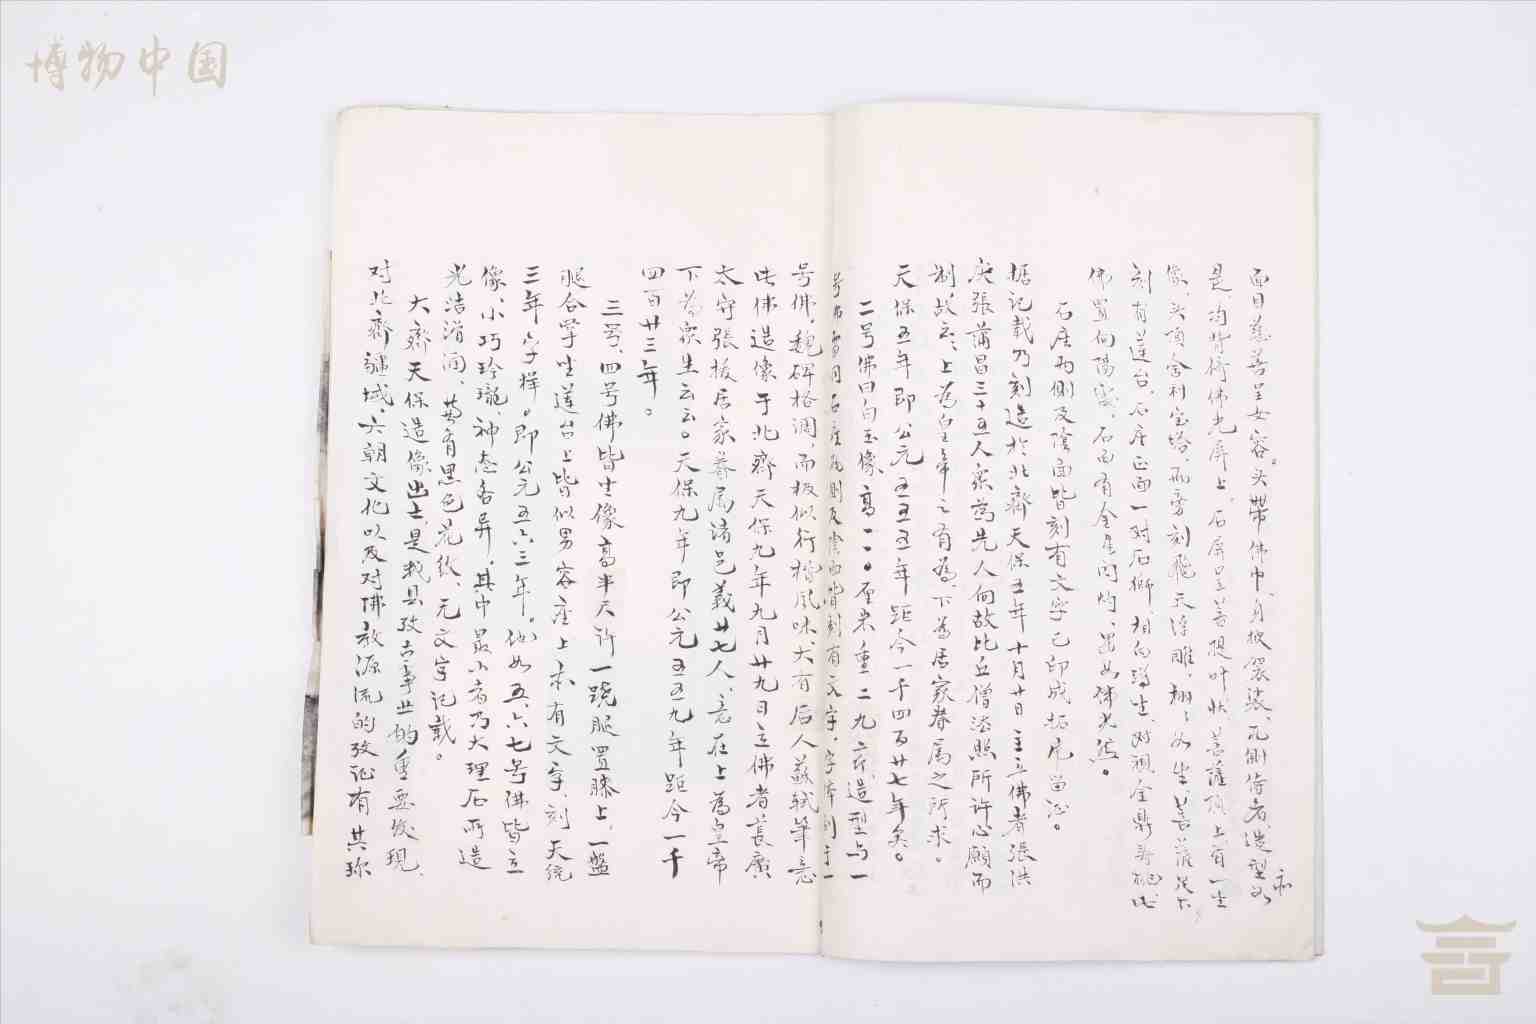 博物中国
面目慈善呈女容。头带佛巾、身披袈裟、两侧侍者造型亦如
是、均背衔佛光屏上。石屏呈菩提叶状、菩萨顶上有一坐
像、头顶舍利宝塔、两旁刻飞天浮雕、翩々如生、菩萨足下
刻有莲台。石座正面一对石狮、相向蹲坐、对视全鼎
佛置向阳处、石面有金星闪灼、若如佛光然。
石座两侧及阴面皆刻有文字已印成拓片留证。
据记载乃刻造於北齐天保五年十月廿日主立佛者張洪
庆張蒲昌三十五人众為先人向故比丘僧法照所许心願而
制故云、上為皇帝之有為、下為居家眷属之所求。
天保五年即公元五五五年距今一千四百廿七年矣。
二号佛曰白玉像高一一〇厘米重二九六斤造型与一
号如雷同石座两侧及阴面皆刻有文字、字体别于一
号佛，魏碑格调，而极似行楷风味、大有后人蘇轼筆意
此佛造像于北齐天保九年九月廿九日立佛者長廣
太守張拔居家眷属诸邑義廿七人、意在上為皇帝
下為众生云云。天保九年即公元五五九年距今一千
四百廿三年。
三号、四号佛皆坐像高半尺许一跷腿置膝上，一盤
腿合掌坐莲台上皆似男容座上亦有文字，刻天统
三年六字样。即公元五六三年。他如五、六、七号佛皆立
像、小巧玲瓏、神态各异、其中最小者乃大理石所造
光洁润润、黄有黑色花纹、无文字记载。
大齐天保造像出土是我县考古事业的重要发现、
对北齐疆域、六朝文化以及对佛教源流的考证有其珍